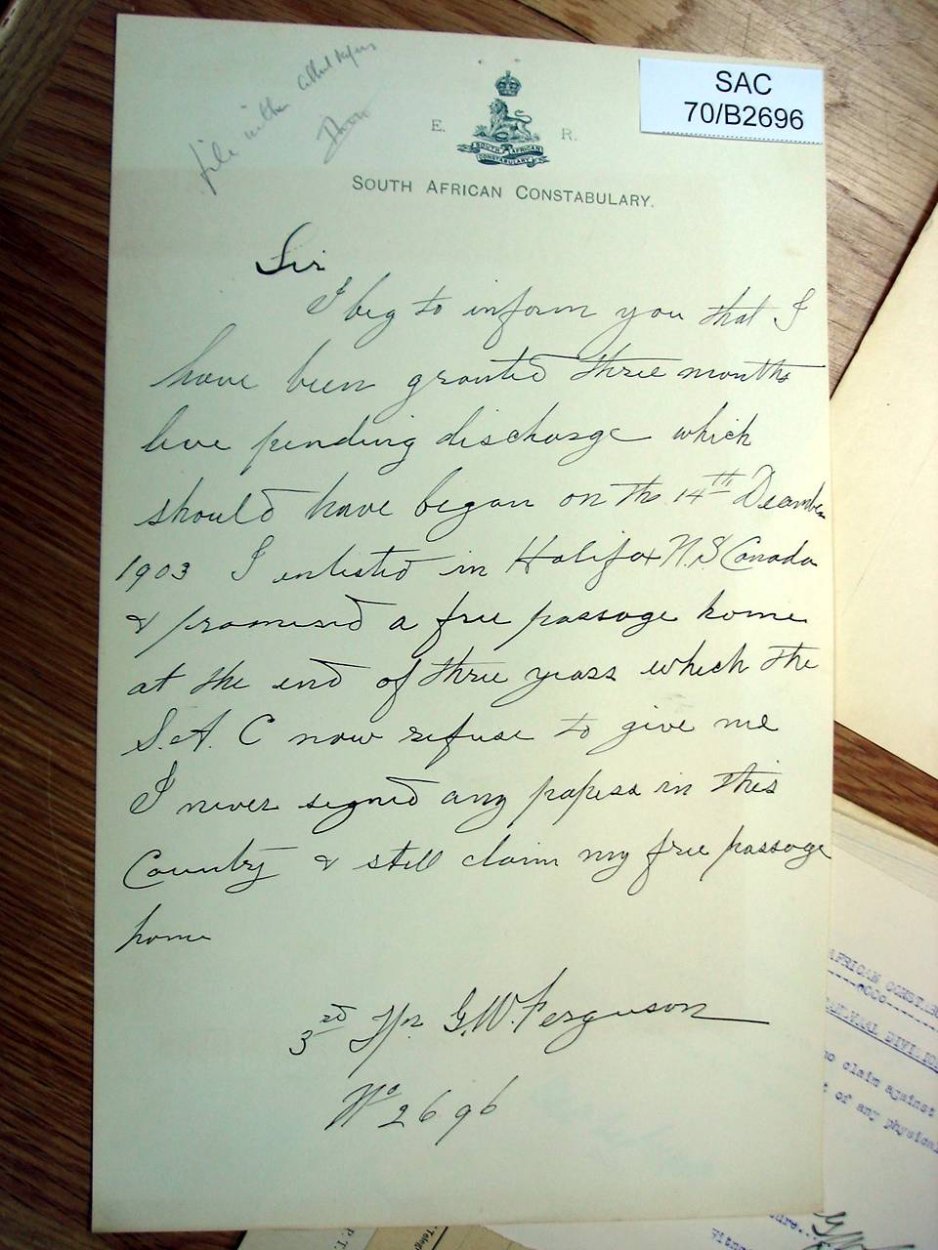 SAC
70/B2696
file
E. R.
SOUTH AFRICAN
CONSTABULARY
SOUTH AFRICAN CONSTABULARY.
Sir
I beg to inform you that I
have been granted three months
leve pending discharge which
should have began on the 14TH December
1903 I enlisted in Halifax N.S Canada
& promised a free passage home
at the end of three years which the
S.A. C now refuse to give me
I never signed any papers in this
Country & still claim my free passage
home
3rd Tpr G.W. Ferguson
No 2696
AFRICAN CONSTAB
--oOo--
DIVI
no claim against
of any physical